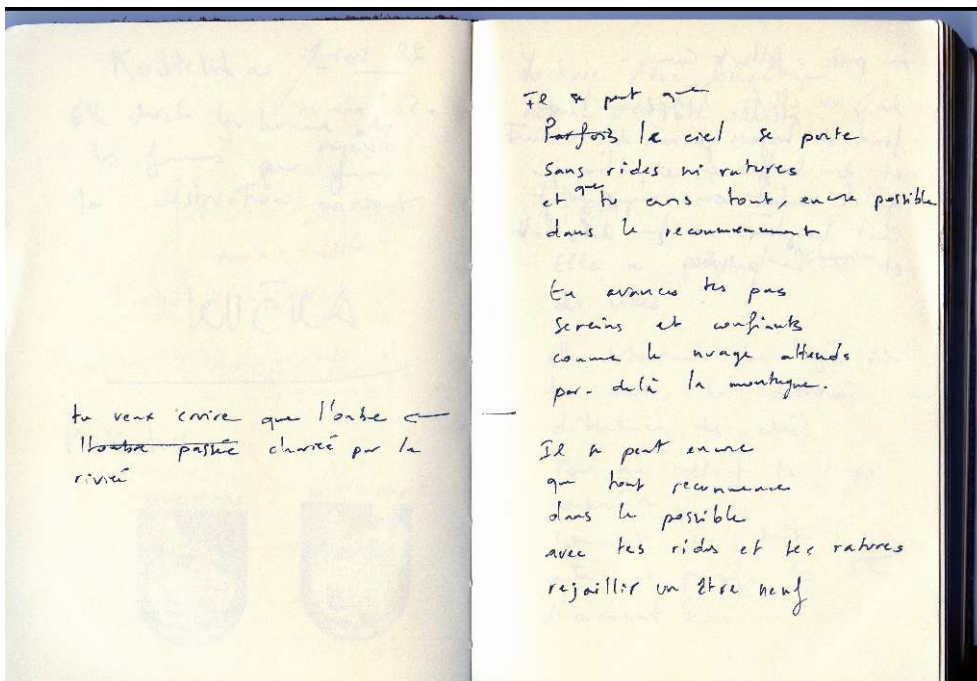 tu veux croire que l'ombre
l'ombre passée charrié par la
rivié
Il se peut que
Parfois le ciel se porte
sans rides ni ratures
et que tu crois tout, encore possible
dans le recommencement
tu avances tes pas
sereins et confiants
comme le nuage attends
par-delà la montagne.
Il se peut encore
que tout recommence
dans le possible
avec tes rides et tes ratures
rejaillir un être neuf